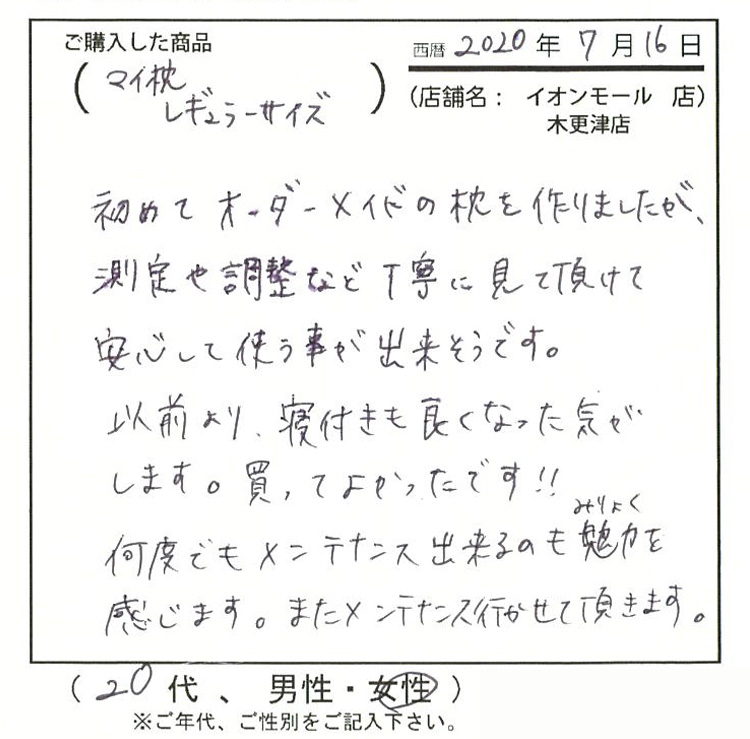 ご購入した商品
西暦 2020 年 7 月 16 日
(マイ枕
レギュラーサイズ)
(店舗名： イオンモール 店)
木更津店
初めてオーダーメイドの枕を作りましたが、
測定や調整など丁寧に見て頂けて
安心して使う事が出来そうです。
以前より、寝付きも良くなった気が
します。買ってよかったです!!
みりょく
何度でもメンテナンス出来るのも魅力を
感じます。またメンテナンス行かせて頂きます。
(20 代 、 男性・女性 )
※ご年代、ご性別をご記入下さい。